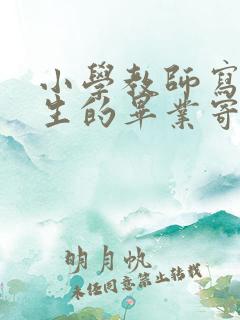 小學教師寫
生的畢業寄
明月帆
未任同意禁止转载